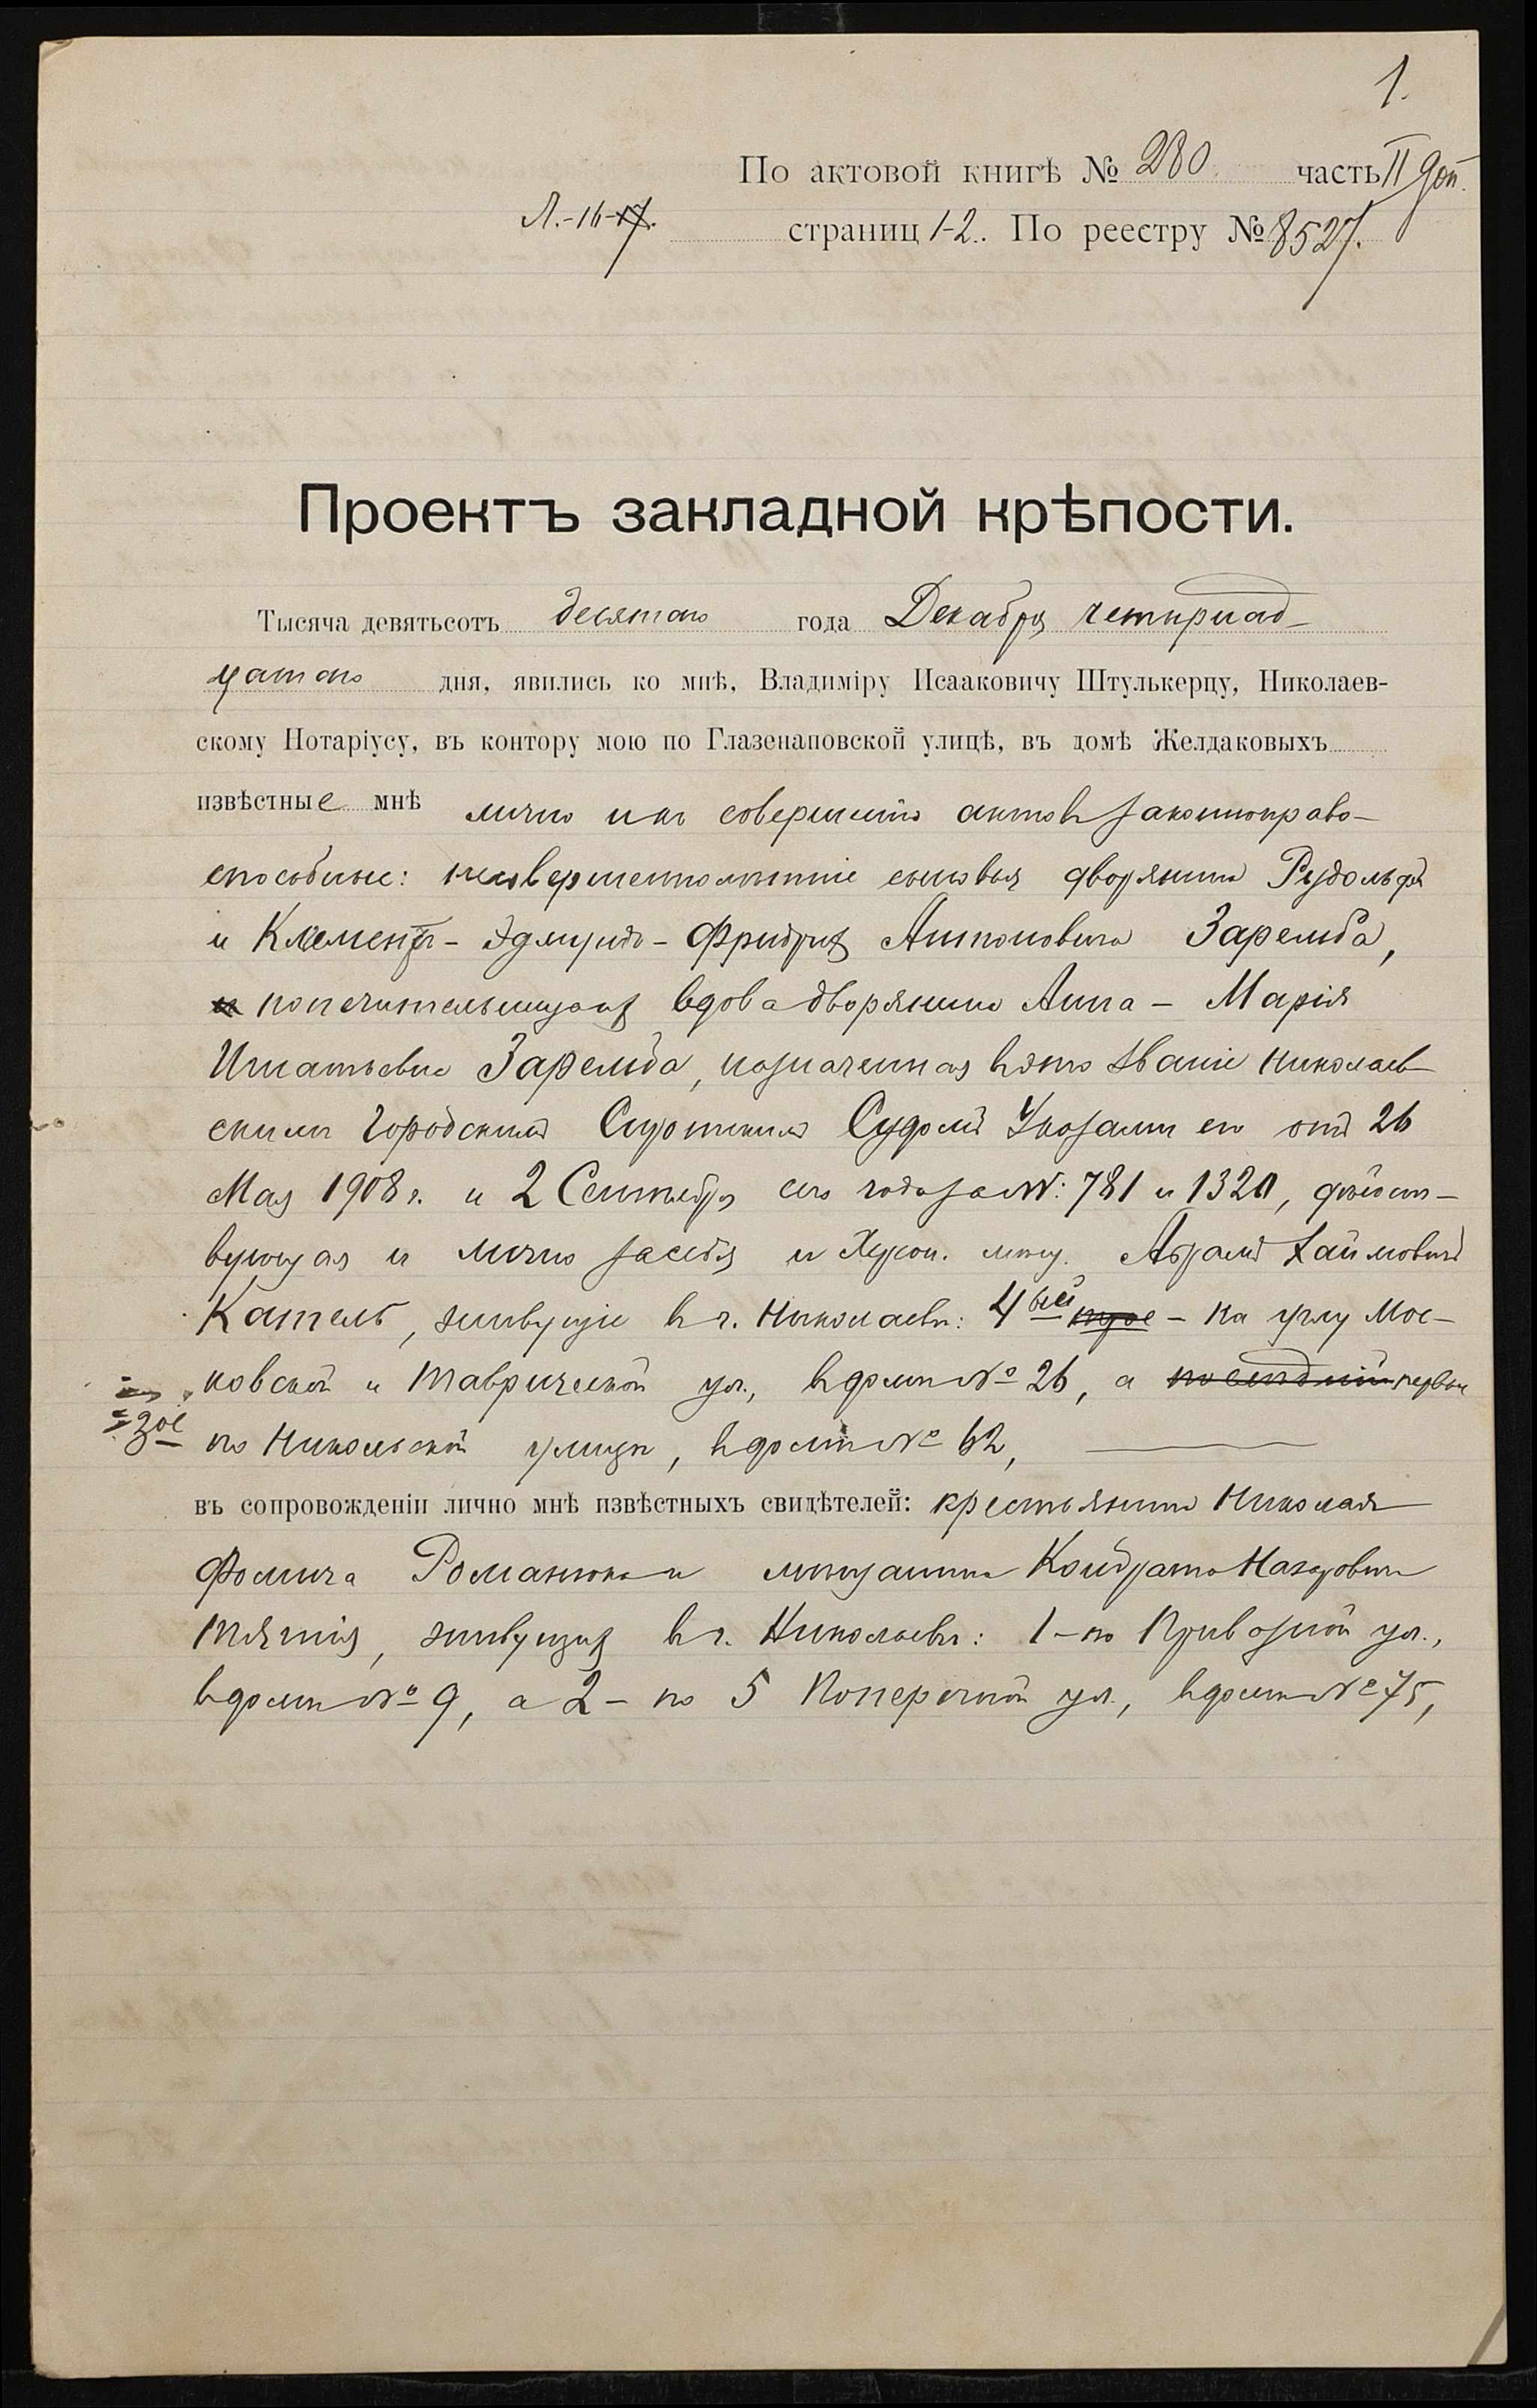 1.
По актовой книгѣ № 280 часть II доп.
Л.-16-17. страниц 1-2. По реестру № 8527.
Проектъ закладной крѣпости.
Тысяча девятьсотъ десятаго года Декабря четырнад-
цатаго дня, явились ко мнѣ, Владиміру Исааковичу Штулькерцу, Николаев-
скому Нотаріусу, въ контору мою по Глазенаповской улицѣ, въ домѣ Желдаковыхъ
извѣстные мнѣ лично и къ совершенію актовъ законноправо-
способные: несовершеннолѣтніе сыновья дворянина Рудольфъ
и Климентъ-Эдмундъ-Фридрихъ Антоновичи Заремба,
попечительница ихъ вдова дворянина Анна-Марія
Игнатьевна Заремба, назначенная въ это званіе Николаев-
скимъ Городскимъ Сиротскимъ Судомъ Указами его отъ 26
Мая 1908 г. и 2 Сентября сего года за №: 781 и 1320, дѣйст-
вующая и лично за себя и Херсон. мѣщ. Абрамъ Хаимовичъ
Кагель, живущіе въ г. Николаевѣ: 4ый - на углу Мос-
ковской и Таврической ул., въ домѣ № 26, а первые
3ое по Никольской улицѣ, въ домѣ № 62,
въ сопровожденіи лично мнѣ извѣстныхъ свидѣтелей: крестьянина Николая
Фомича Романюка и мѣщанина Кондрата Назаровича
живущихъ въ г. Николаевѣ: 1-по Привозной ул.,
въ домѣ № 9, а 2-по 5 Поперечной ул., въ домѣ № 75,